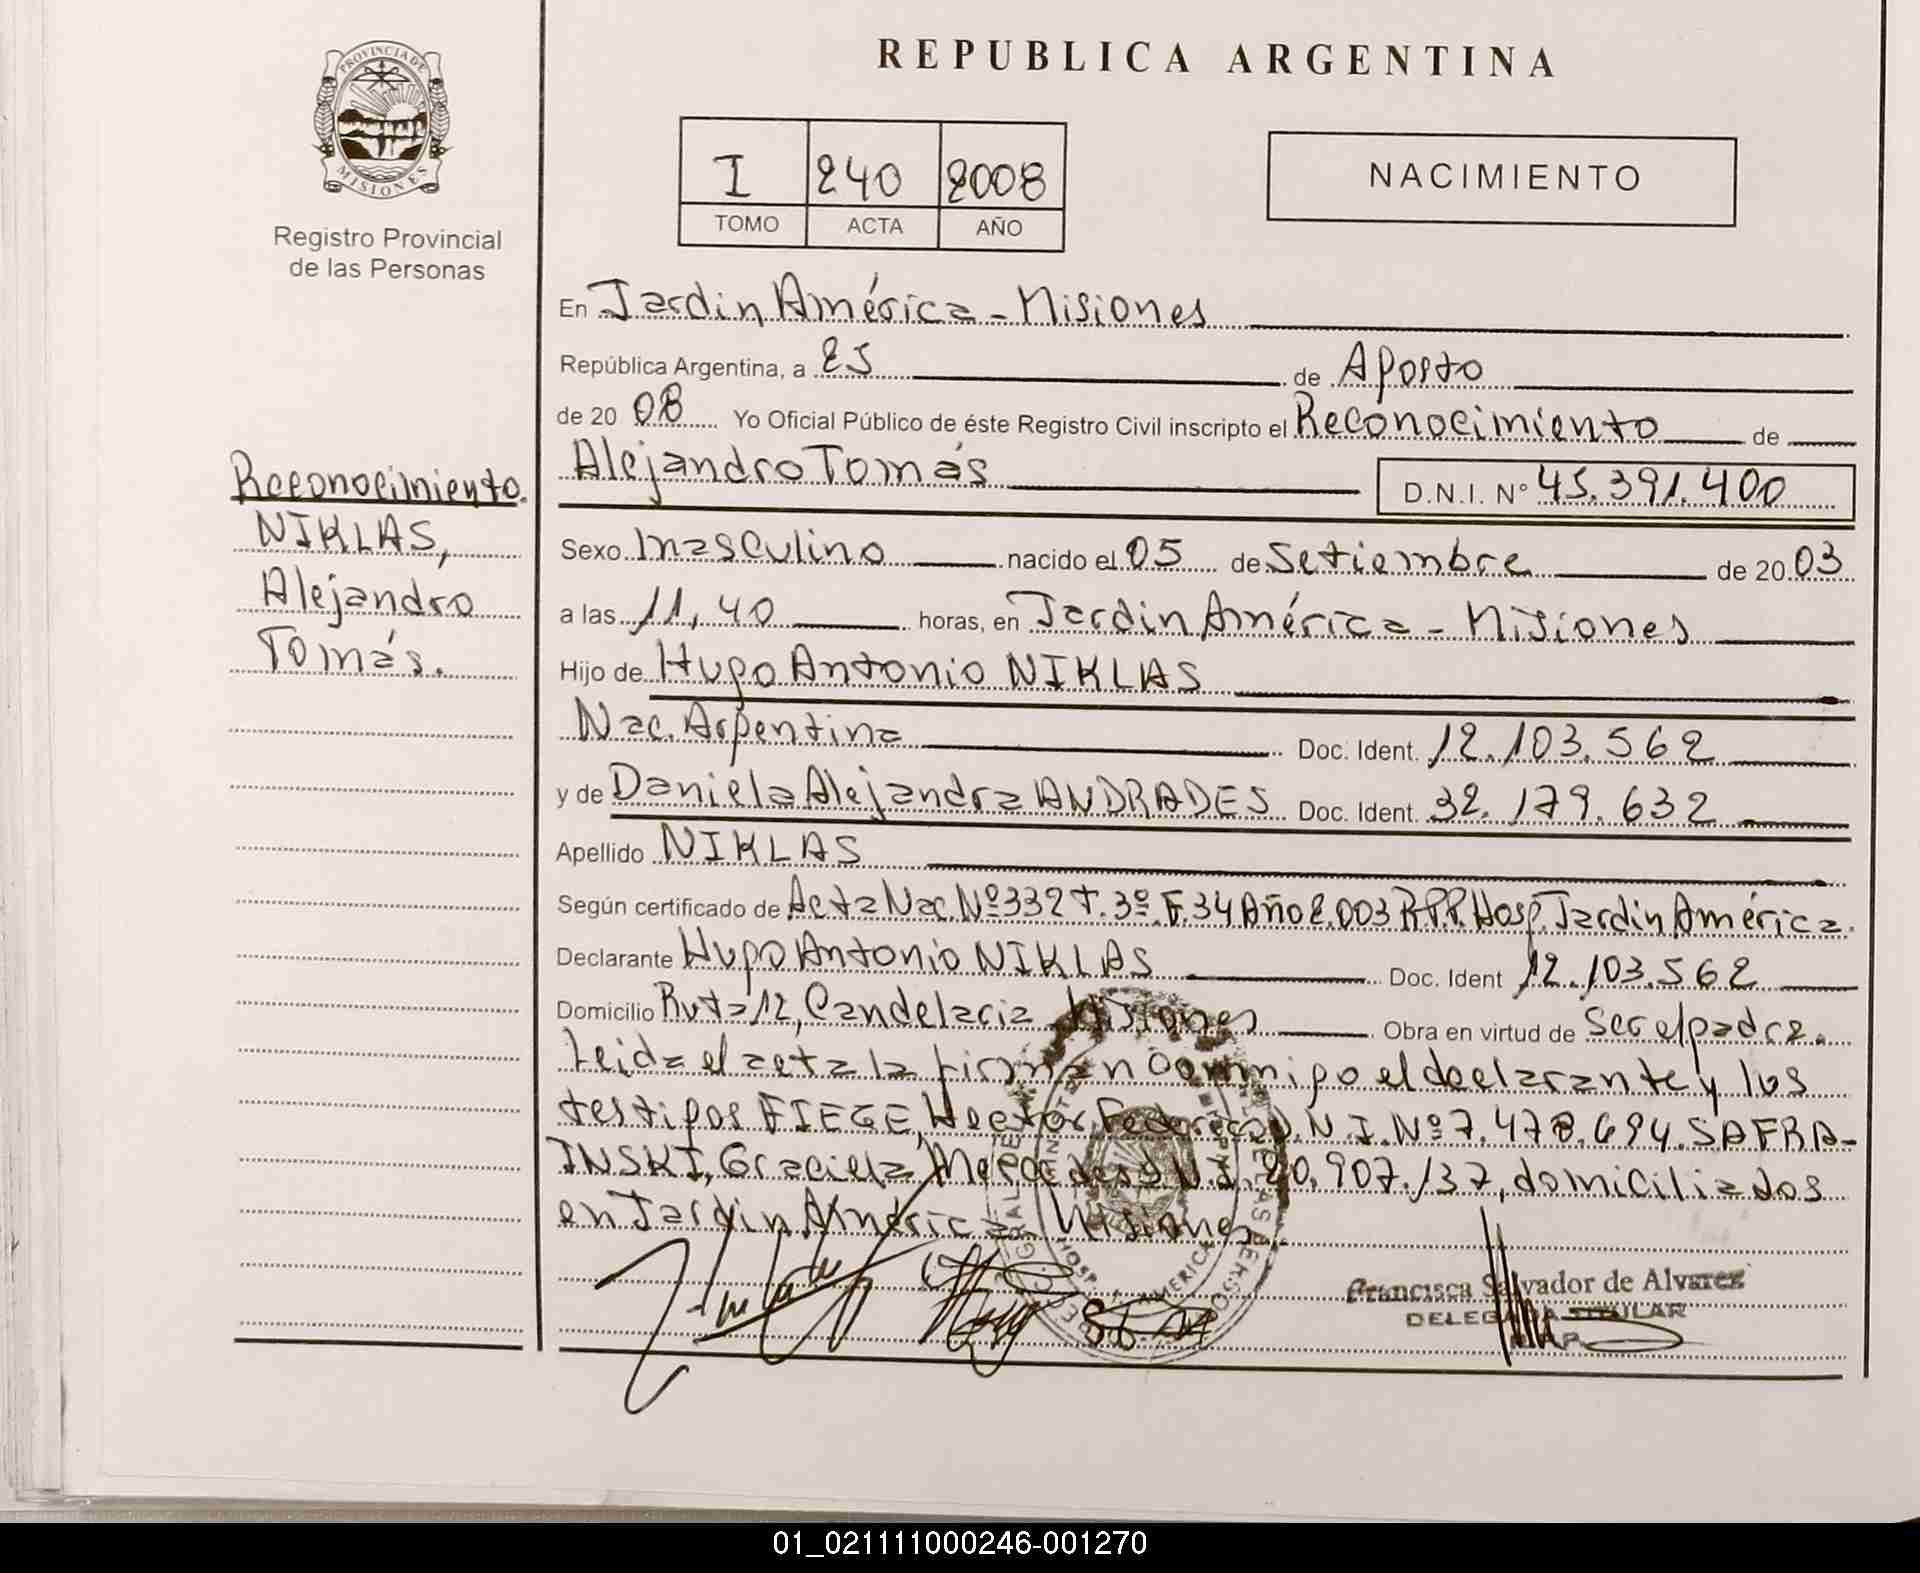 REPUBLICA ARGENTINA
PROVINCIA DE
MISIONES
Registro Provincial
de las Personas
I 240 2008
TOMO ACTA AÑO
NACIMIENTO
En Jardin América - Misiones
República Argentina, a 25 de Agosto
de 20 08 Yo Oficial Público de éste Registro Civil inscripto el Reconocimiento de
Alejandro Tomás D.N.I. N° 45.391.400
Reconocimiento.
NIKLAS,
Alejandro
Tomás.
Sexo masculino nacido el 05 de Setiembre de 20 03
a las 11,40 horas, en Jardin América - Misiones
Hijo de Hugo Antonio NIKLAS
Nac. Argentina Doc. Ident. 12.103.562
y de Daniela Alejandra ANDRADES Doc. Ident. 32.179.632
Apellido NIKLAS
Según certificado de Acta Nac. Nº 332 T. 3º F. 34 Año 2.003 R.P.P. Hosp. Jardin América.
Declarante Hugo Antonio NIKLAS Doc. Ident 12.103.562
Domicilio Ruta 12, Candelaria Misiones Obra en virtud de Ser el padre.
Leida el acta la firman conmigo el declarante y los
testigos FIEGE, Hector Federico D.N.I. Nº 7.478.694. SAFRA-
INSKI, Graciela Mercedes D.N.I. 20.907.137, domiciliados
en Jardin América Misiones.
Francisca Salvador de Alvarez
DELEGADA TITULAR
01_021111000246-001270